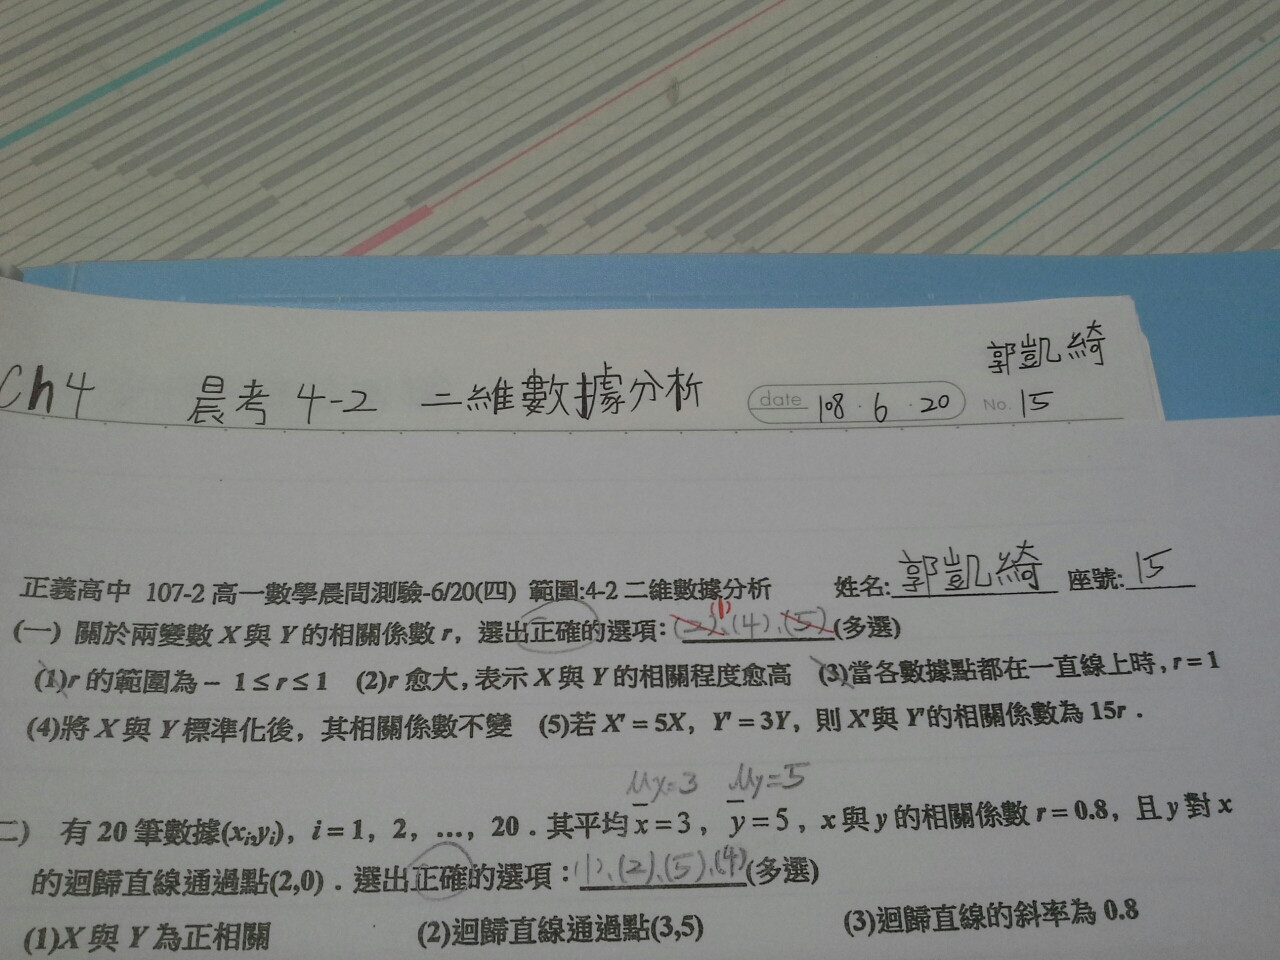 郭凱綺
Ch4 晨考 4-2 二維數據分析 date 108.6.20 No. 15
正義高中 107-2 高一數學晨間測驗-6/20(四) 範圍:4-2 二維數據分析 姓名:郭凱綺 座號:15
(一) 關於兩變數 X 與 Y 的相關係數 r，選出正確的選項：(2)、(1)(4)、(5)(多選)
(1)r 的範圍為－1≤r≤1 (2)r 愈大，表示 X 與 Y 的相關程度愈高 (3)當各數據點都在一直線上時，r=1
(4)將 X 與 Y 標準化後，其相關係數不變 (5)若 X'=5X，Y'=3Y，則 X'與 Y'的相關係數為 15r．
μx=3 μy=5
二) 有 20 筆數據(xi,yi)，i=1，2，…，20．其平均 x̄=3，ȳ=5，x 與 y 的相關係數 r=0.8，且 y 對 x
的迴歸直線通過點(2,0)．選出正確的選項：(1)、(2)、(5)、(4)(多選)
(1)X 與 Y 為正相關 (2)迴歸直線通過點(3,5) (3)迴歸直線的斜率為 0.8